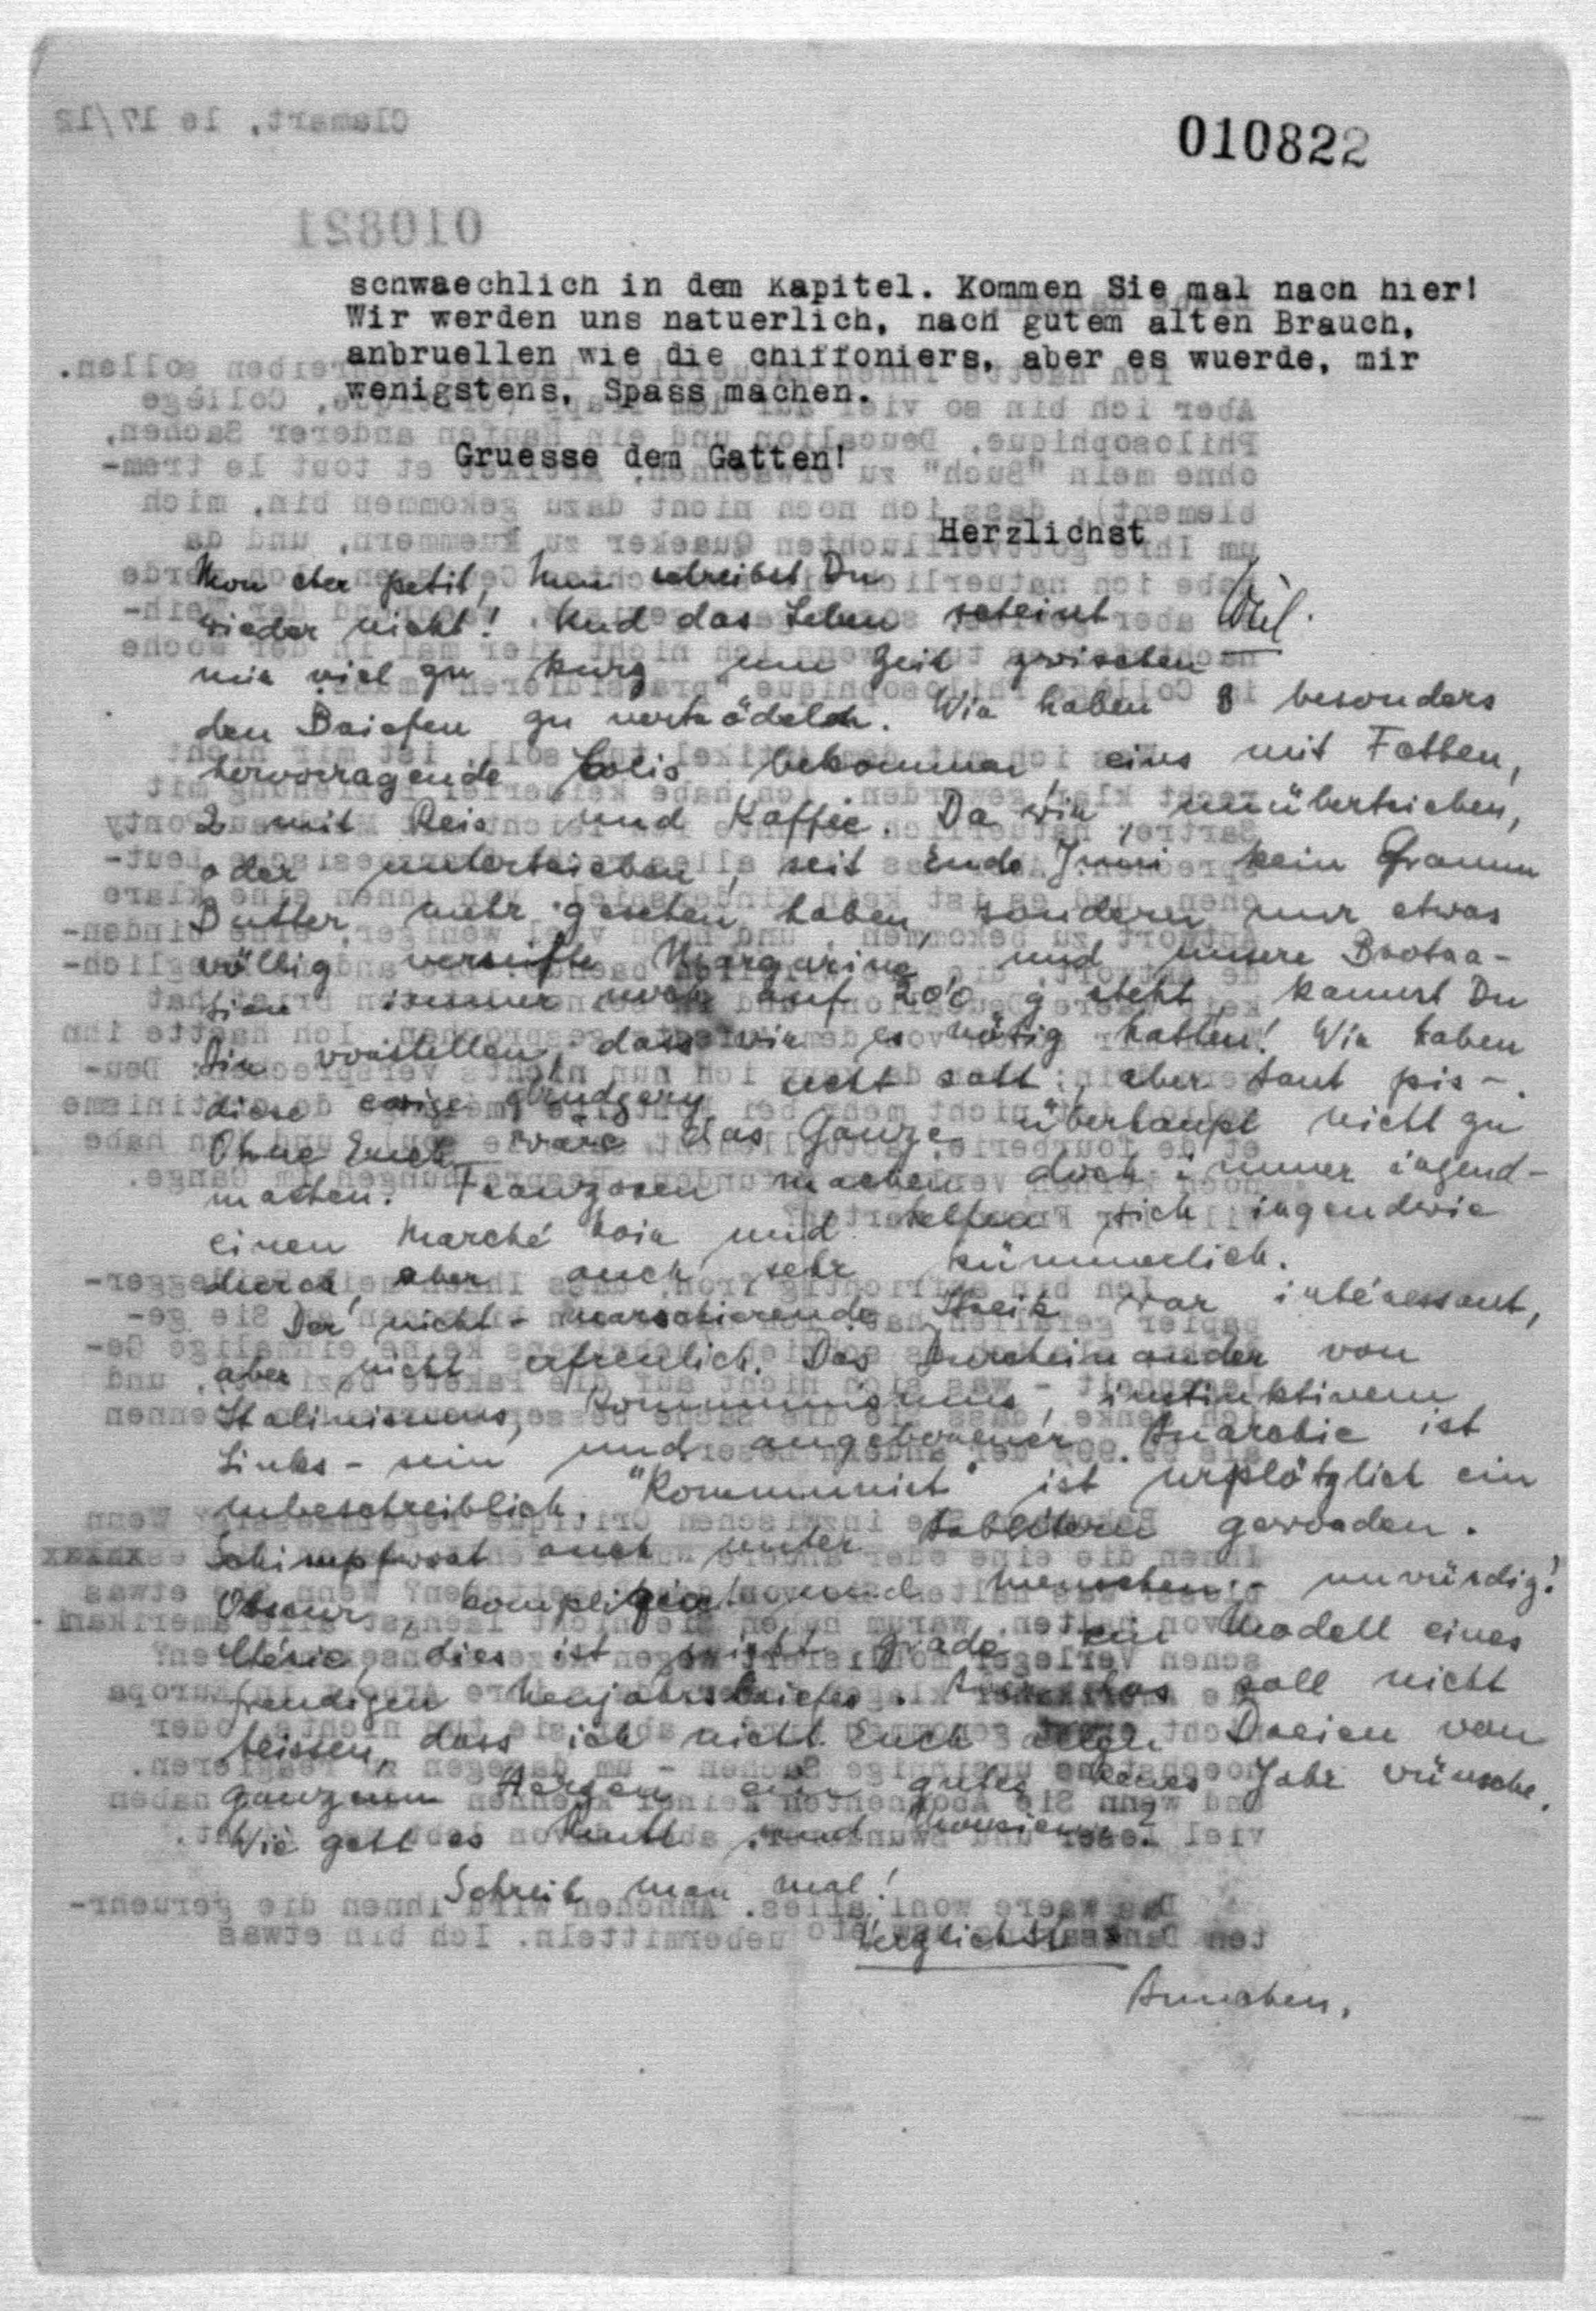 010822
schwaechlich in dem Kapitel. Kommen Sie mal nach hier!
Wir werden uns natuerlich, nach gutem alten Brauch,
anbruellen wie die chiffoniers, aber es wuerde, mir
wenigstens, Spass machen.
Gruesse dem Gatten!
Herzlichst
Mon cher petit, nun schreibst Du
wieder nicht! Und das Leben scheint
mir viel zu kurz um Zeit zwischen
den Briefen zu vertrödeln. Wir haben 3 besonders
hervorragende Colis bekommen, eins mit Fetten,
2 mit Reis und Kaffee. Da wir, unübertrieben,
oder untertrieben, seit Ende Juni kein Gramm
Butter mehr gesehen haben, sondern nur etwas
völlig verseifte Margarine, und unsere Brotra-
tion immer noch auf 200 g steht, kannst Du
Dir vorstellen, dass wir es nötig hatten! Wir haben
diese ewige satt, aber tant pis.
Ohne Euch wäre das Ganze überhaupt nicht zu
machen. Franzosen machen doch immer irgend-
einen Marché noir und helfen sich irgendwie
durch, aber auch sehr kümmerlich.
Der nicht-marschierende Streik war interessant,
aber nicht erfreulich. Das Durcheinander von
Stalinismus, Kommunismus, instinktivem
Links-sein und angeborener Anarchie ist
unbeschreiblich. "Kommunist" ist urplötzlich ein
Schimpfwort auch unter Arbeitern geworden.
Obscur, kompliziert und menschen-unwürdig!
Chérie, dies ist nicht grade ein Modell eines
freudigen Neujahrsbriefes. Aber das soll nicht
heissen, dass ich nicht Euch allen Dreien von
ganzem Herzen ein gutes neues Jahr wünsche.
Wie geht es Mutt und Monsieur?
Schreib man mal!
Herzlichst
Annchen.